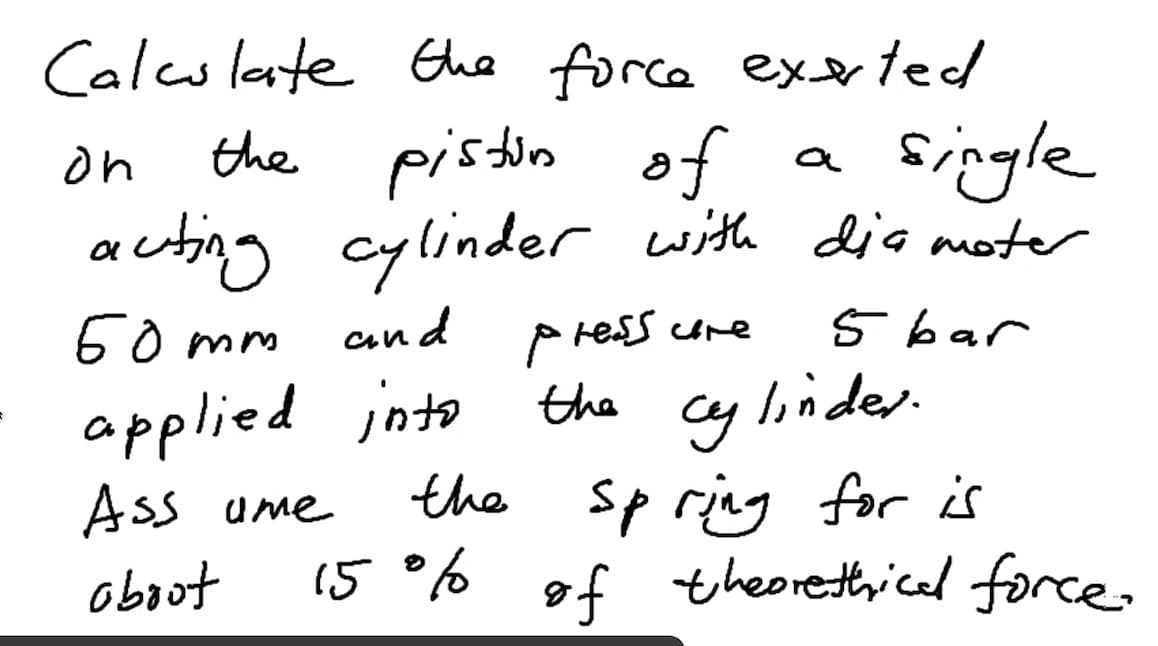 Calculate the force exerted
on the piston of a single
acting cylinder with diameter
50 mm and pressure 5 bar
applied into the cylinder.
Assume the spring for is
about 15 % of theorethical force.